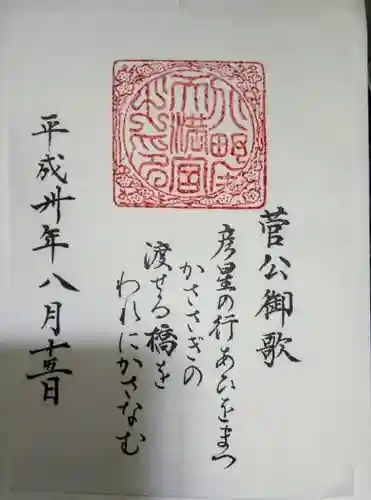 菅公御歌
彦星の行あひをまつ
かささぎの
渡せる橋を
われにかさなむ
平成卅年八月十五日
北野天満宮